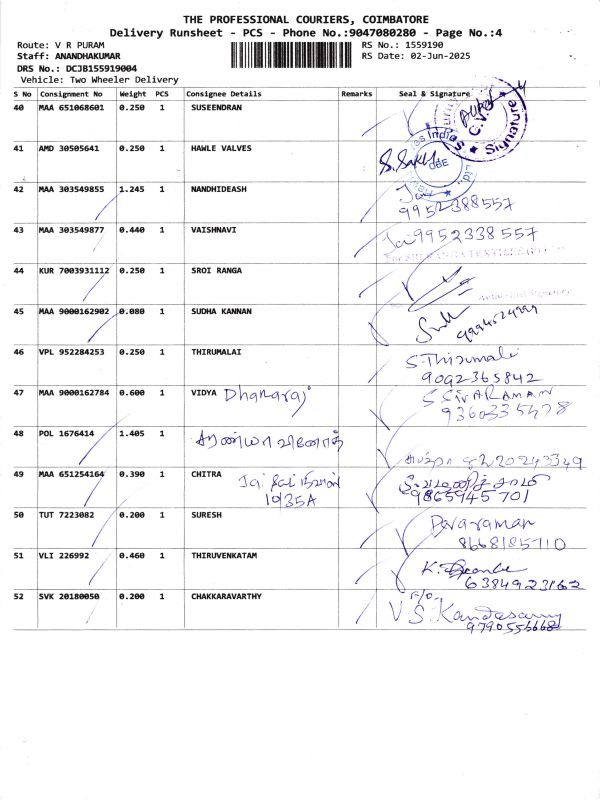 THE PROFESSIONAL COURIERS, COIMBATORE
Delivery Runsheet - PCS - Phone No.:9047080280 - Page No.:4
Route: V R PURAM RS No.: 1559190
Staff: ANANDHAKUMAR RS Date: 02-Jun-2025
DRS No.: DCJB155919004
Vehicle: Two Wheeler Delivery
S No Consignment No Weight PCS Consignee Details Remarks Seal & Signature
40 MAA 651068601 0.250 1 SUSEENDRAN
Signature
41 AMD 30505641 0.250 1 HAWLE VALVES
CBE
42 MAA 303549855 1.245 1 NANDHIDEASH Jai
9952388557
43 MAA 303549877 0.440 1 VAISHNAVI Jai 9952338557
44 KUR 7003931112 0.250 1 SROI RANGA
Authorised Signatory
45 MAA 9000162902 0.080 1 SUDHA KANNAN
46 VPL 952284253 0.250 1 THIRUMALAI S.Thirumalai
9092365842
47 MAA 9000162784 0.600 1 VIDYA Dhanaraj S SIVARAMAN
9360335478
48 POL 1676414 1.405 1 8220243349
49 MAA 651254164 0.390 1 CHITRA
1935A 9865945701
50 TUT 7223082 0.200 1 SURESH Devaraman
8668185710
51 VLI 226992 0.460 1 THIRUVENKATAM K.
6384923162
52 SVK 20180050 0.200 1 CHAKKARAVARTHY F/o.
V S. Kandasamy